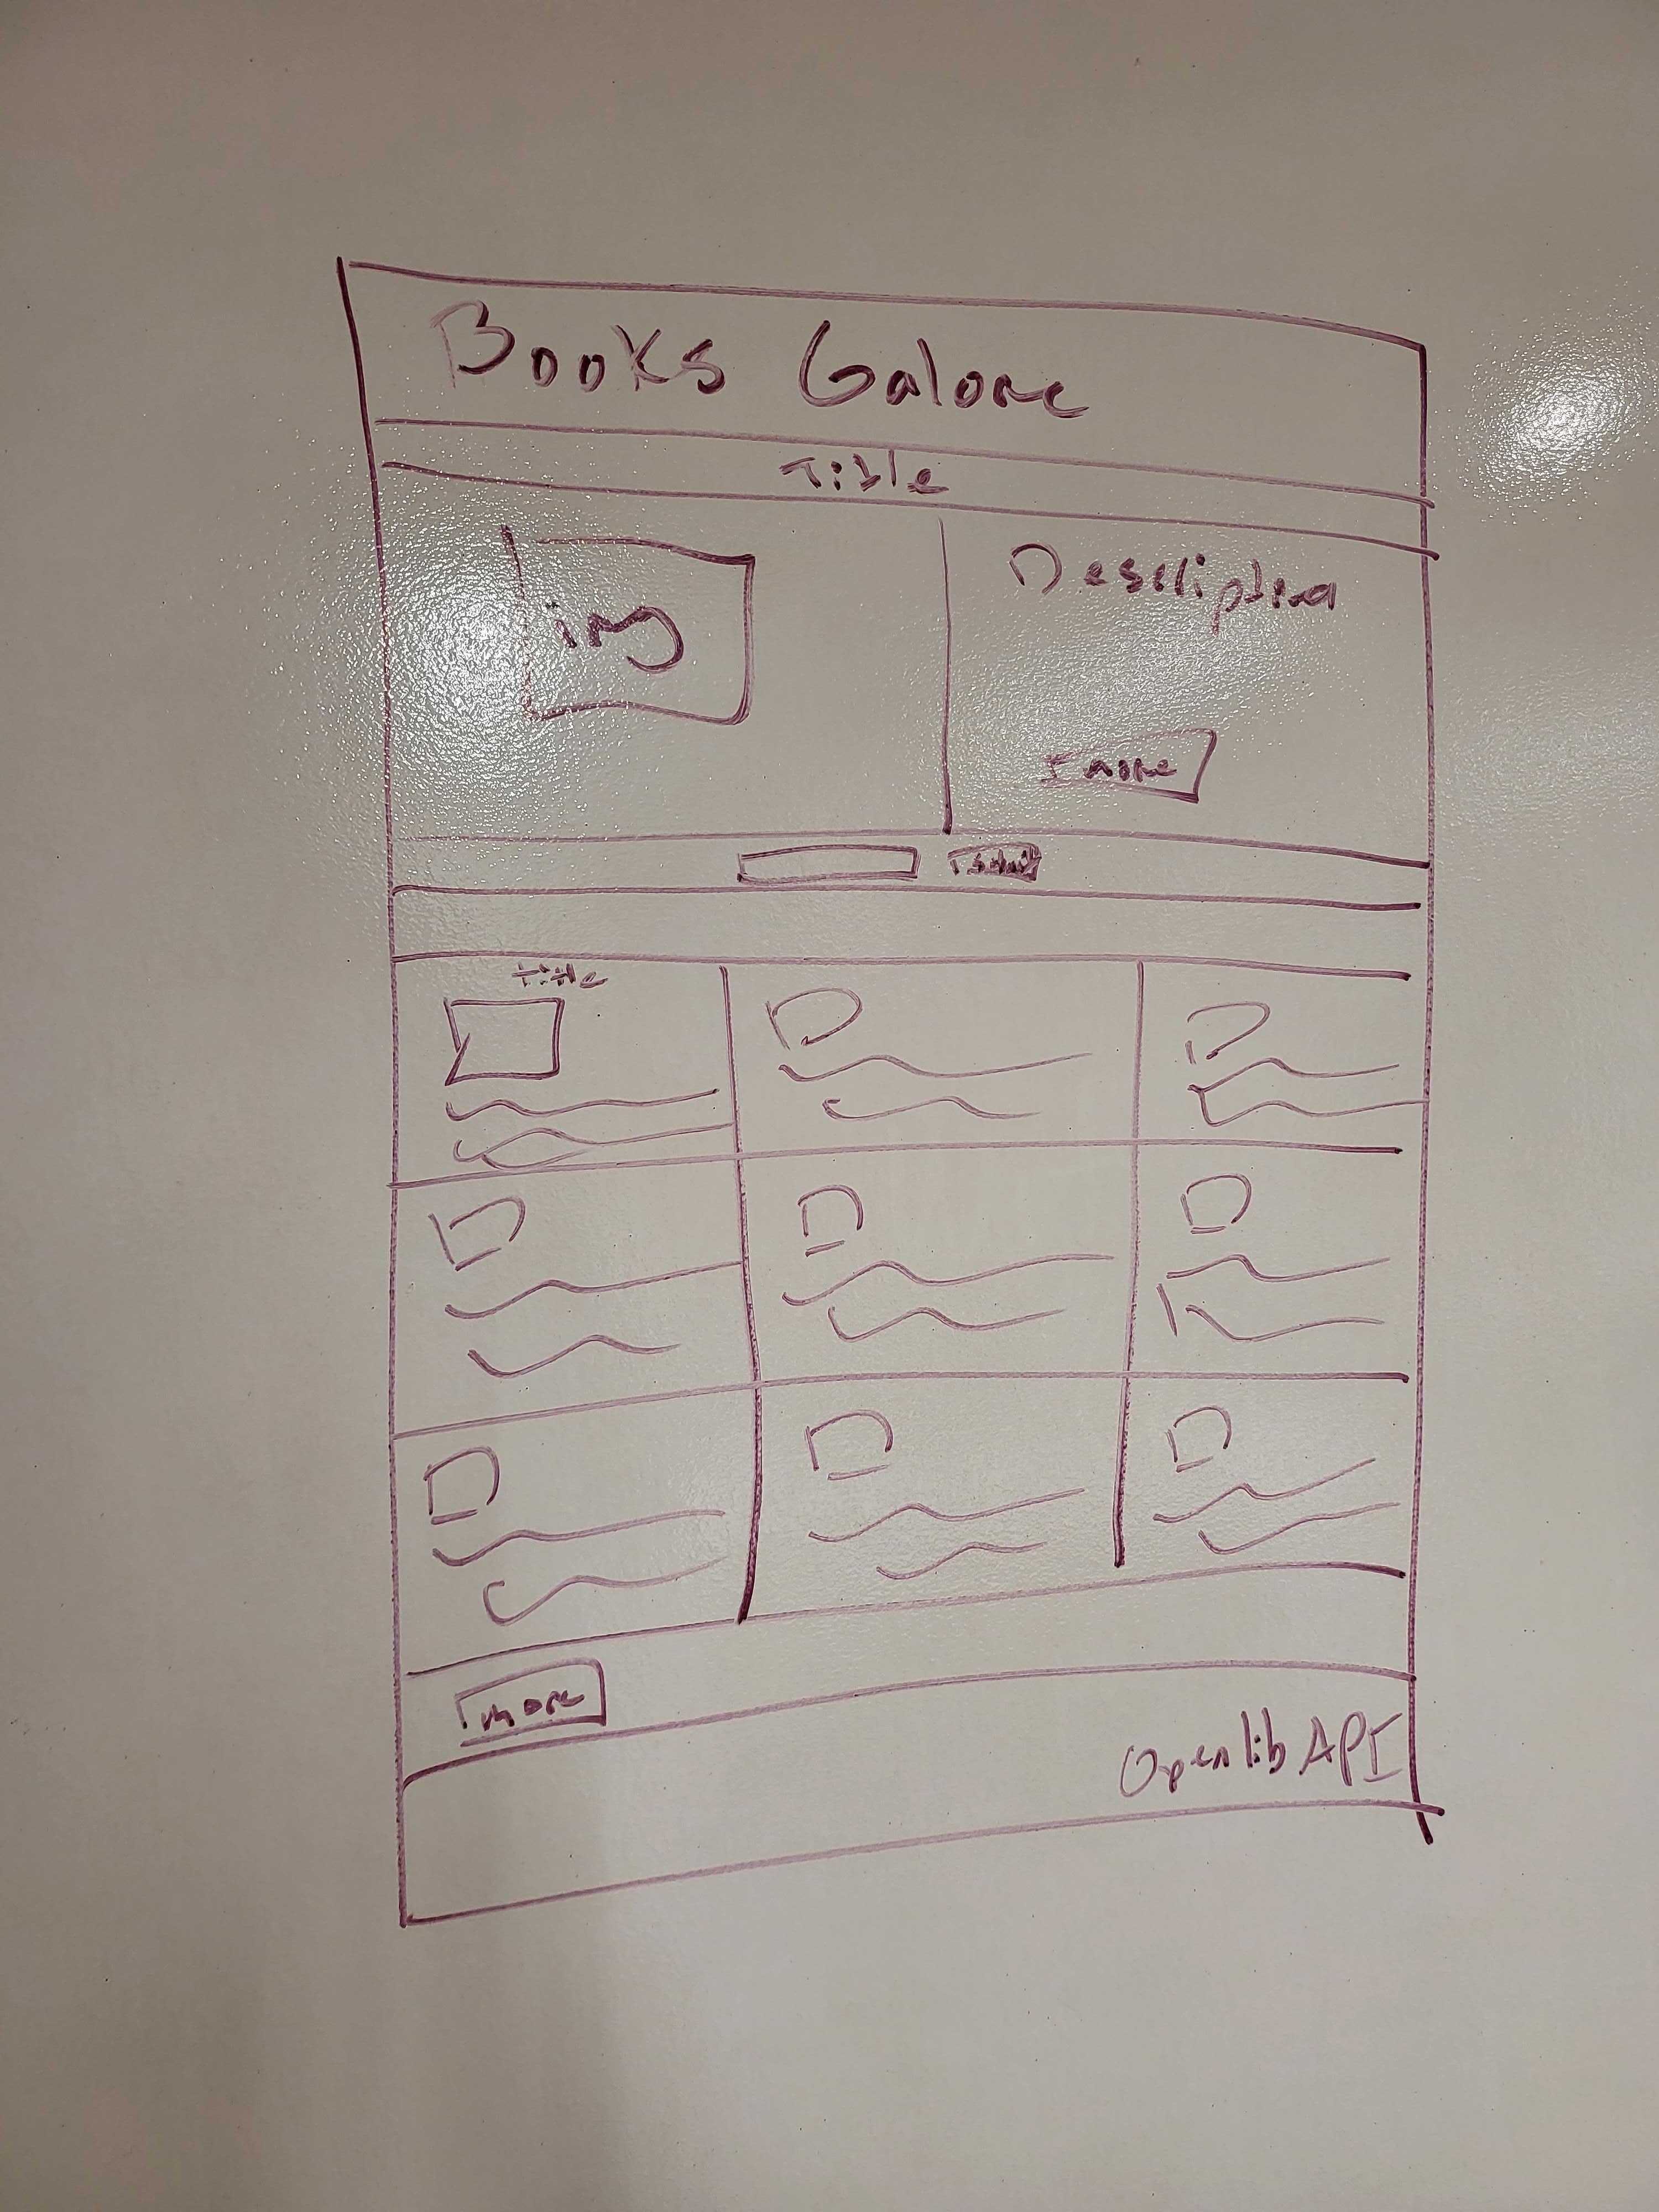 Books Galore
Title
img
Description
more
Submit
Title
more
Openlib API